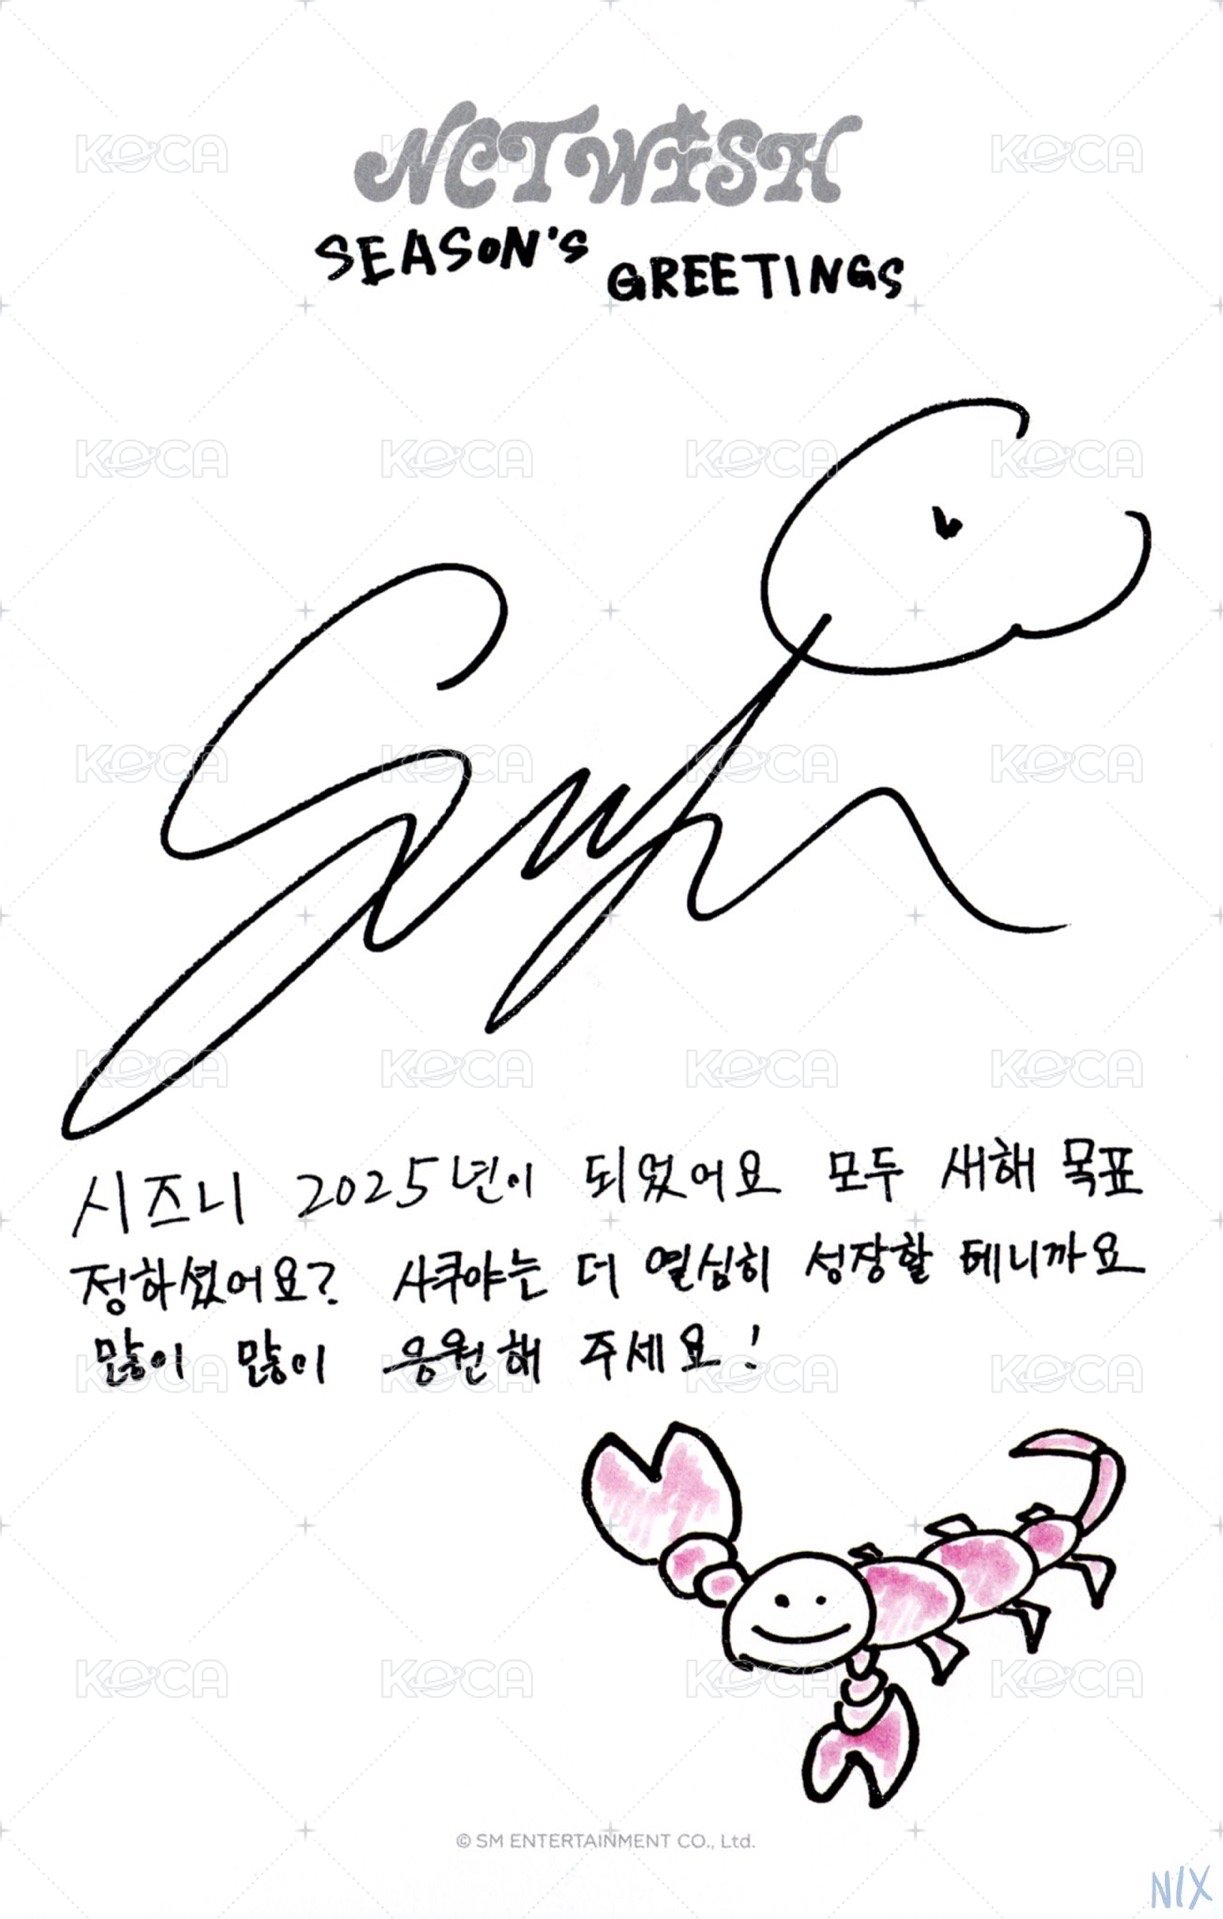 NCT WISH
SEASON'S GREETINGS
시즈니 2025년이 되었어요 모두 새해 목표
정하셨어요? 사쿠야는 더 열심히 성장할 테니까요
많이 많이 응원해 주세요!
© SM ENTERTAINMENT CO., Ltd.
N/X
KOCA